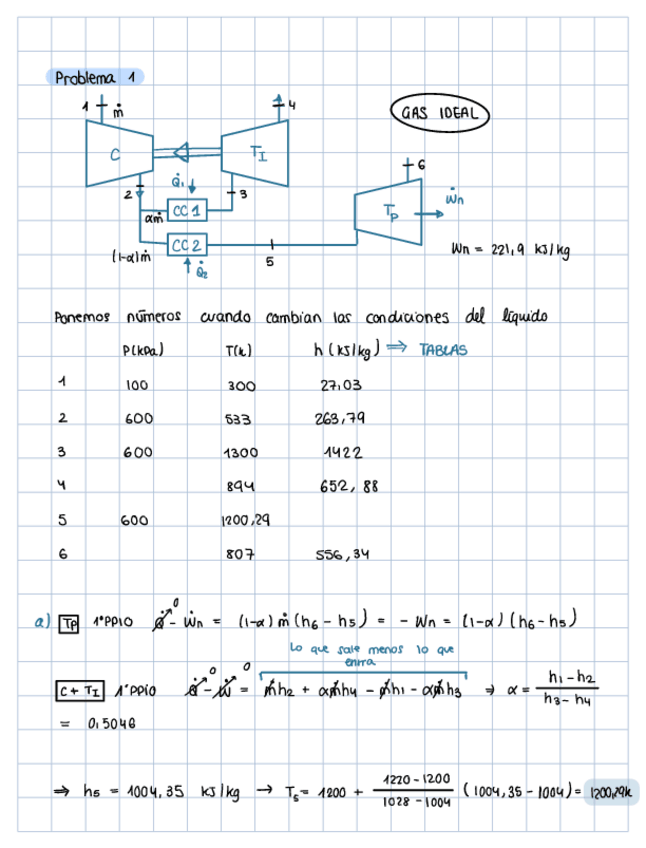 Problema 1
1 ṁ
4
GAS IDEAL
C
T_I
6
Q̇₁
2
3
Ẇn
αṁ
CC 1
T_p
CC 2
(1-α)ṁ
5
Wn = 221,9 kJ/kg
Q̇₂
Ponemos números cuando cambian las condiciones del líquido
P(kPa) T(k) h (kJ/kg) ⇒ TABLAS
1 100 300 27,03
2 600 533 263,79
3 600 1300 1422
4 894 652,88
5 600 1200,29
6 807 556,34
a) Tp 1ºPPIO Q̇ 0 - Ẇn = (1-α) ṁ (h6 - h5) = - Wn = (1-α) (h6 - h5)
Lo que sale menos lo que
entra
C + T_I 1ºPPIO Q̇ 0 - Ẇ 0 = ṁh2 + αṁh4 - ṁh1 - αṁh3 ⇒ α = (h1 - h2)/(h3 - h4)
= 0,5046
⇒ h5 = 1004,35 kJ/kg → T5 = 1200 + (1220 - 1200)/(1028 - 1004) (1004,35 - 1004) = 1200,29k